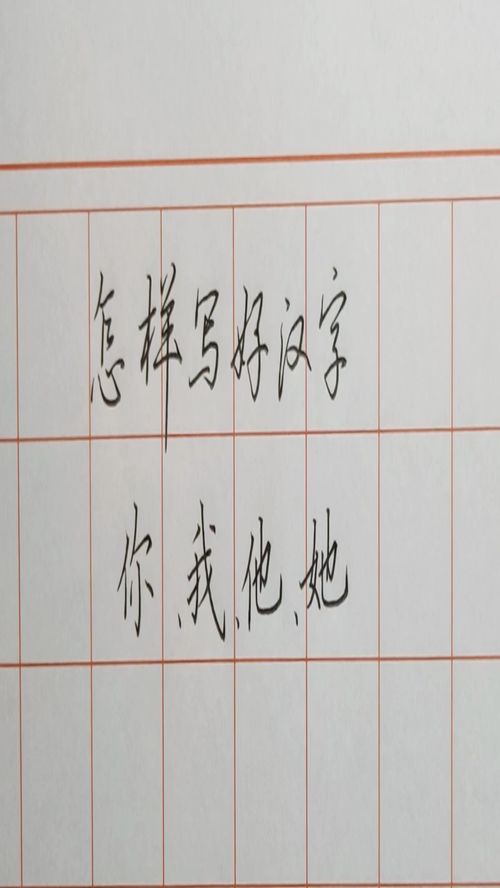 怎样写好汉字
你、我、他、她